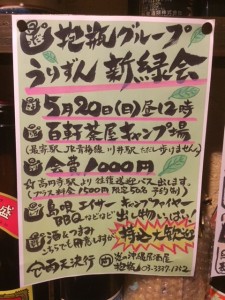 抱瓶グループ
うりずん 新緑会
5月20日(日)昼12時
百軒茶屋キャンプ場
(最寄駅 JR青梅線 川井駅 ただし歩けません)
会費 1000円
☆高円寺駅より往復送迎バス出します。
(プラス料金1500円 限定50名 予約制)
島唄 エイサー キャンプファイヤー
BBQ などなど 出し物いっぱい
酒&つまみ
こちらでも用意します
持込大歓迎
雨天決行
沖縄居酒屋
抱瓶 03-3337-1352